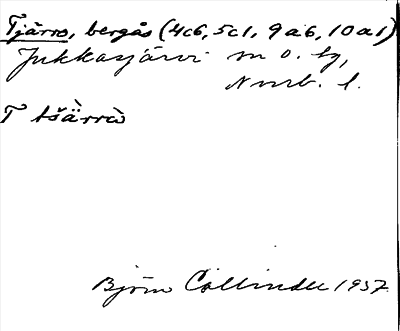 Tjärro, bergås (4c6, 5c1, 9a6, 10a1)
Jukkasjärvi sn o. tg,
Norrb. l.
T tšä̀rrò
Björn Collinder 1937